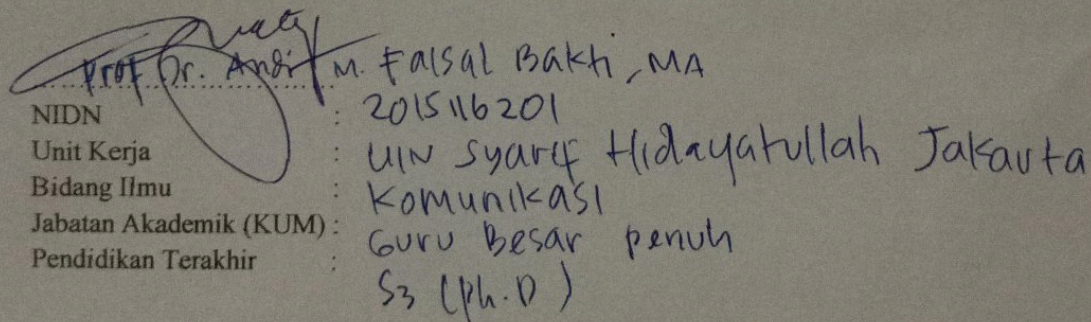 Prof Dr. Andi M. Faisal Bakti, MA
NIDN : 2015116201
Unit Kerja : UIN Syarif Hidayatullah Jakarta
Bidang Ilmu : Komunikasi
Jabatan Akademik (KUM) : Guru Besar penuh
Pendidikan Terakhir : S3 (Ph.D)